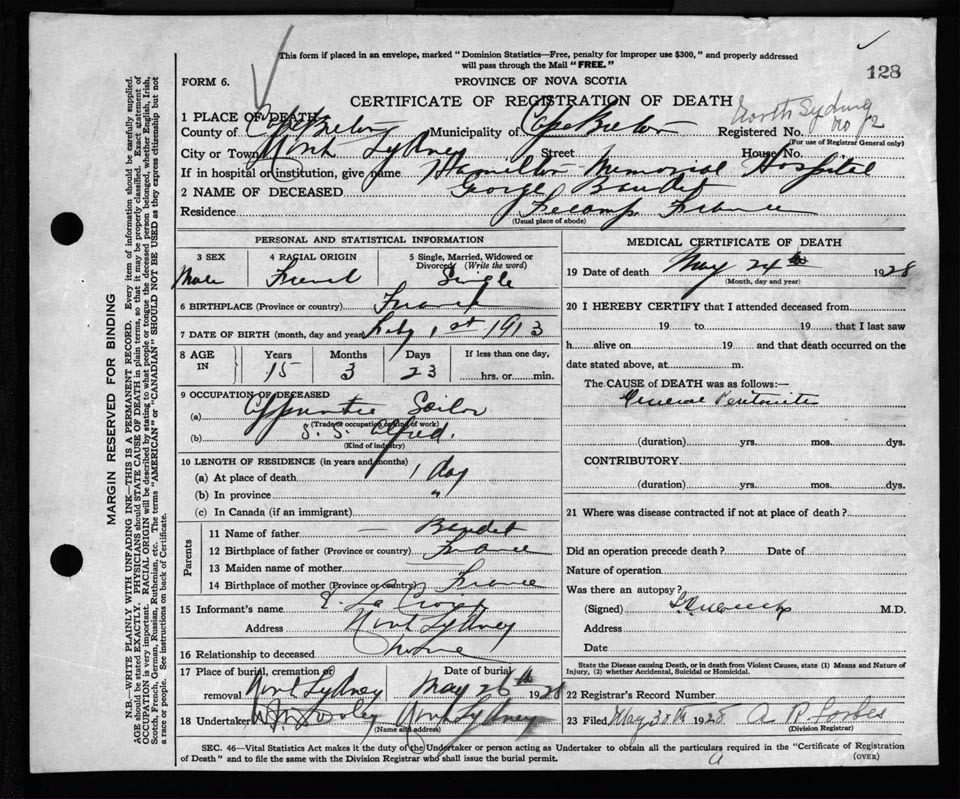 This form if placed in an envelope, marked "Dominion Statistics—Free, penalty for improper use $300," and properly addressed
will pass through the Mail "FREE."
128
FORM 6.
PROVINCE OF NOVA SCOTIA
CERTIFICATE OF REGISTRATION OF DEATH
North Sydney
no 72
1 PLACE OF DEATH—
County of Cape Breton Municipality of Cape Breton Registered No.
(For use of Registrar General only)
City or Town North Sydney Street House No.
If in hospital or institution, give name Hamilton Memorial Hospital
2 NAME OF DECEASED George Baudet
Residence Fecamp France
(Usual place of abode)
PERSONAL AND STATISTICAL INFORMATION
3 SEX 4 RACIAL ORIGIN 5 Single, Married, Widowed or
Divorced (Write the word)
Male French Single
6 BIRTHPLACE (Province or country) France
7 DATE OF BIRTH (month, day and year) Feby 1st 1913
8 AGE IN Years Months Days If less than one day,
15 3 23 hrs. or min.
9 OCCUPATION OF DECEASED
(a) Apprentice Sailor
(Trade or occupation or kind of work)
(b) S. S. Alfred.
(Kind of industry)
10 LENGTH OF RESIDENCE (in years and months)
(a) At place of death 1 day
(b) In province "
(c) In Canada (if an immigrant)
Parents
11 Name of father — Baudet
12 Birthplace of father (Province or country) France
13 Maiden name of mother
14 Birthplace of mother (Province or country) France
15 Informant's name
Address North Sydney
16 Relationship to deceased
17 Place of burial, cremation or Date of burial
removal North Sydney May 26th 1928
18 Undertaker North Sydney
(Name and address)
MEDICAL CERTIFICATE OF DEATH
19 Date of death May 24th 1928
(Month, day and year)
20 I HEREBY CERTIFY that I attended deceased from
19 to 19 that I last saw
h alive on 19 and that death occurred on the
date stated above, at m.
The CAUSE of DEATH was as follows:—
General Peritonitis
(duration) yrs. mos. dys.
CONTRIBUTORY
(duration) yrs. mos. dys.
21 Where was disease contracted if not at place of death?
Did an operation precede death? Date of
Nature of operation
Was there an autopsy?
(Signed) M.D.
Address
Date
State the Disease causing Death, or in death from Violent Causes, state (1) Means and Nature of
Injury, (2) whether Accidental, Suicidal or Homicidal.
22 Registrar's Record Number
23 Filed May 30th 1928 A R Forbes
(Division Registrar)
SEC. 46—Vital Statistics Act makes it the duty of the Undertaker or person acting as Undertaker to obtain all the particulars required in the "Certificate of Registration
of Death" and to file the same with the Division Registrar who shall issue the burial permit.
(OVER)
MARGIN RESERVED FOR BINDING
N.B.—WRITE PLAINLY WITH UNFADING INK—THIS IS A PERMANENT RECORD. Every item of information should be carefully supplied.
AGE should be stated EXACTLY. PHYSICIANS should STATE CAUSE OF DEATH in plain terms, so that it may be properly classified. Exact statement of
OCCUPATION is very important. RACIAL ORIGIN will be described by stating to what people or tongue the deceased person belonged, whether English, Irish,
Scotch, French, German, Russian, Ruthenian, etc. The terms "AMERICAN" or "CANADIAN" SHOULD NOT BE USED as they express citizenship but not
a race or people. See instructions on back of Certificate.